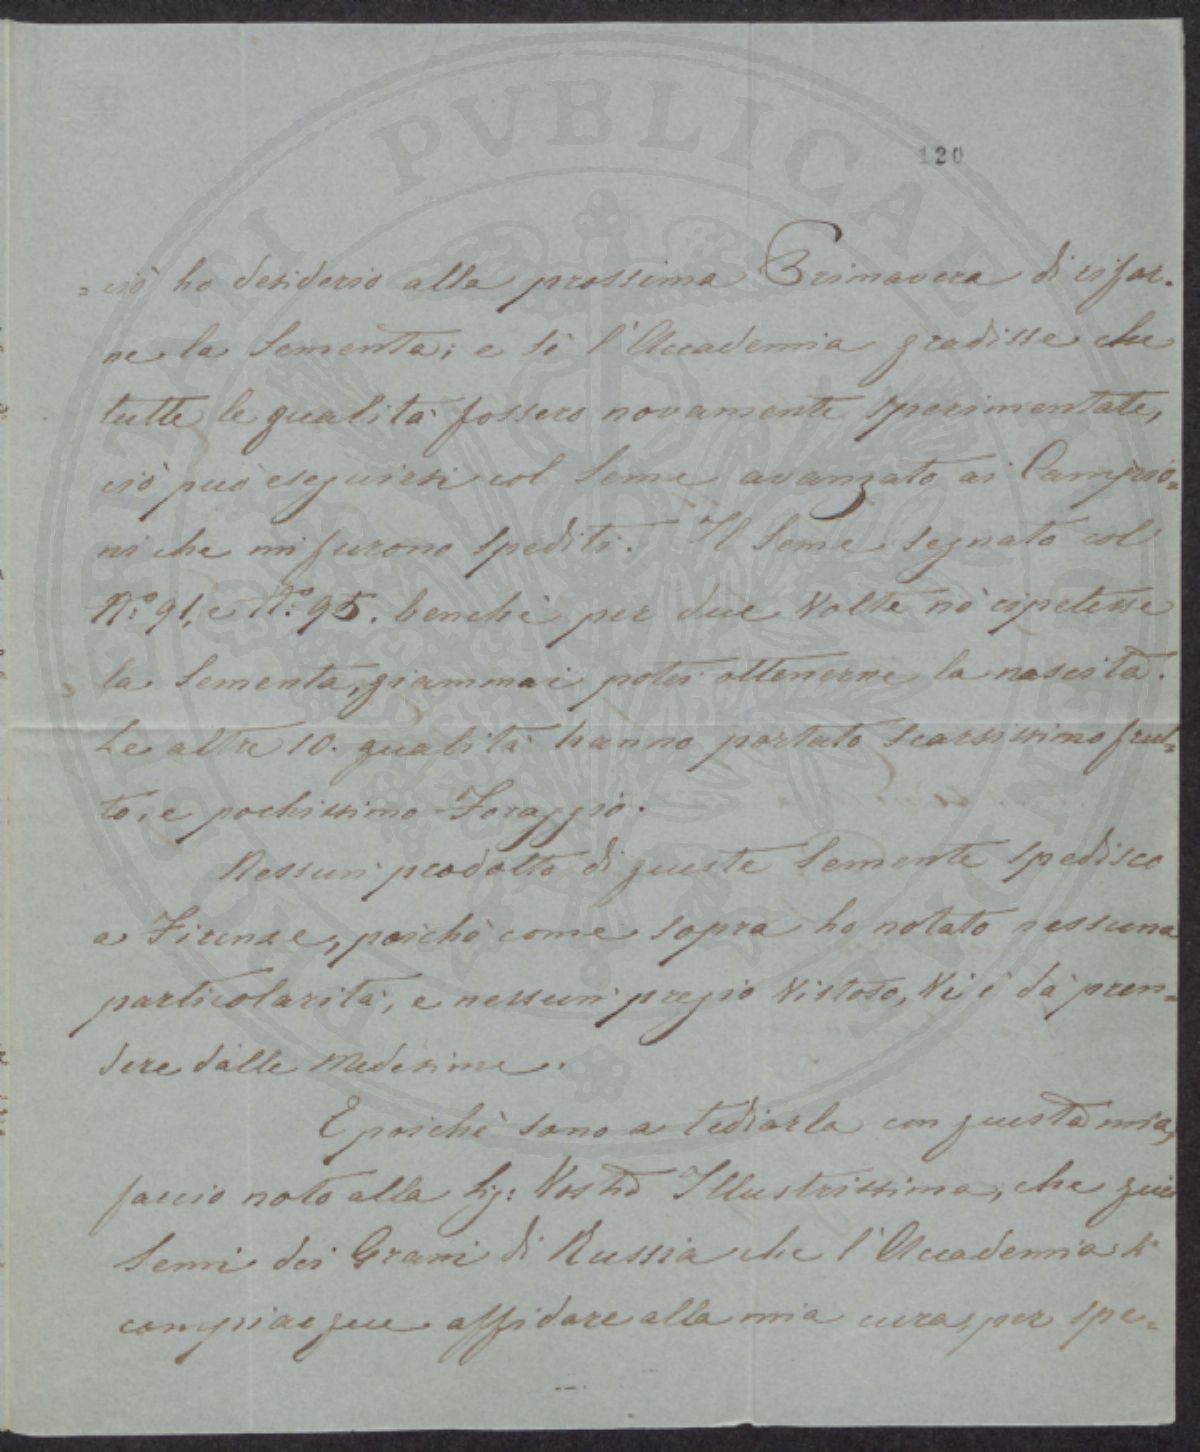 120
=ciò ho desiderio alla prossima Primavera di rifar-
ne la Sementa; e sè l'Accademia gradisse che
tutte le qualità fossero novamente sperimentate,
ciò può eseguirsi col Seme avanzato ai Campio=
ni che mi furono spediti. Il Seme segnato col
N.o 91, e N.o 95. benchè per due Volte nè ripetesse
la Sementa, giammai potei ottenerne la nascita.
Le altre 10. qualità hanno portato Scarsissimo frut=
to, e pochissimo Foraggio.
Nessun prodotto di queste Semente spedisco
a Firenze, poichè come sopra ho notato nessuna
particolarità, e nessun pregio Vistoso, Vi è dà pren=
dere dalle Medesime.
E poichè sono a tediarla con questa mia,
faccio noto alla Sig: Vostrã Illustrissima, che quei
Semi dei Grani di Russia che l'Accademia si
compiacque affidare alla mia cura, per spe=
PVBLICAE